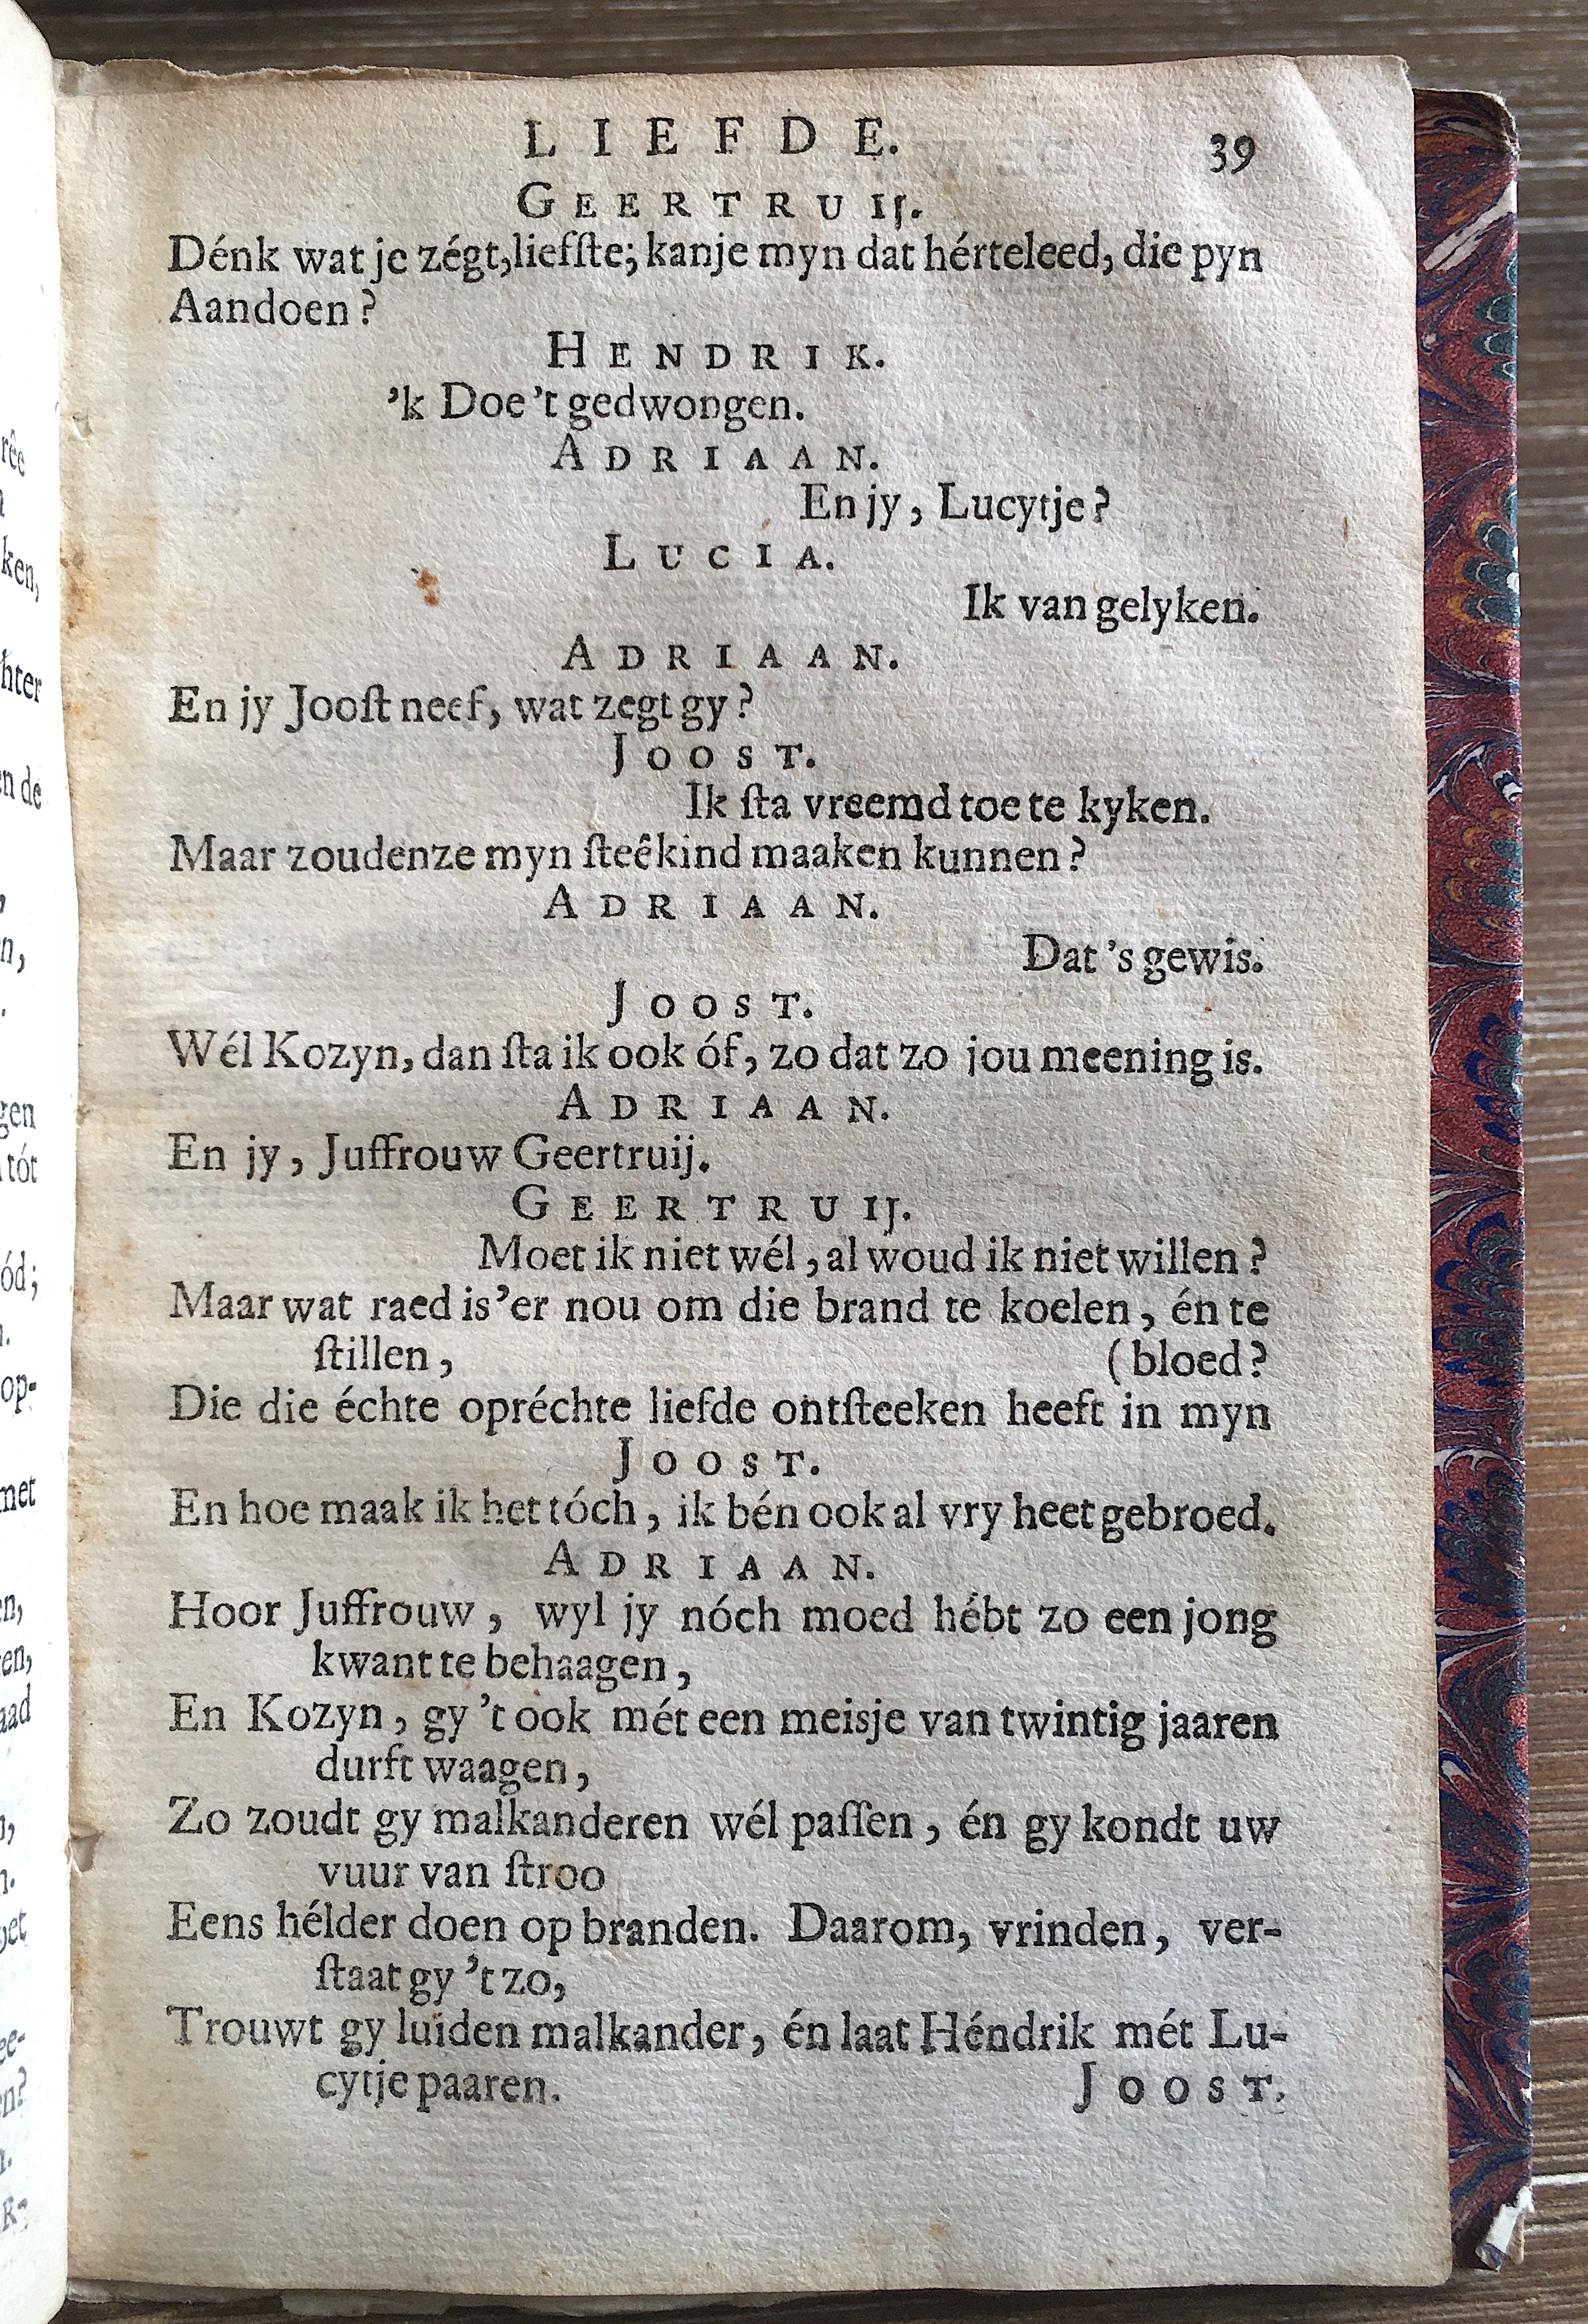 LIEFDE. 39
GEERTRUIJ.
Dénk wat je zégt, liefſte; kanje myn dat hérteleed, die pyn
Aandoen?
HENDRIK.
'k Doe 't gedwongen.
ADRIAAN.
En jy, Lucytje?
LUCIA.
Ik van gelyken.
ADRIAAN.
En jy Jooſt neef, wat zegt gy?
JOOST.
Ik ſta vreemd toe te kyken.
Maar zoudenze myn ſteêkind maaken kunnen?
ADRIAAN.
Dat 's gewis.
JOOST.
Wél Kozyn, dan ſta ik ook óf, zo dat zo jou meening is.
ADRIAAN.
En jy, Juffrouw Geertruij.
GEERTRUIJ.
Moet ik niet wél, al woud ik niet willen?
Maar wat raed is 'er nou om die brand te koelen, én te
ſtillen, (bloed?
Die die échte opréchte liefde ontſteeken heeft in myn
JOOST.
En hoe maak ik het tóch, ik bén ook al vry heet gebroed.
ADRIAAN.
Hoor Juffrouw, wyl jy nóch moed hébt zo een jong
kwant te behaagen,
En Kozyn, gy 't ook mét een meisje van twintig jaaren
durft waagen,
Zo zoudt gy malkanderen wél paſſen, én gy kondt uw
vuur van ſtroo
Eens hélder doen op branden. Daarom, vrinden, ver-
ſtaat gy 't zo,
Trouwt gy luiden malkander, én laat Héndrik mét Lu-
cytje paaren. JOOST.
rêe
ken,
hter
en de
n,
gen
tót
ód;
op-
met
en,
aad